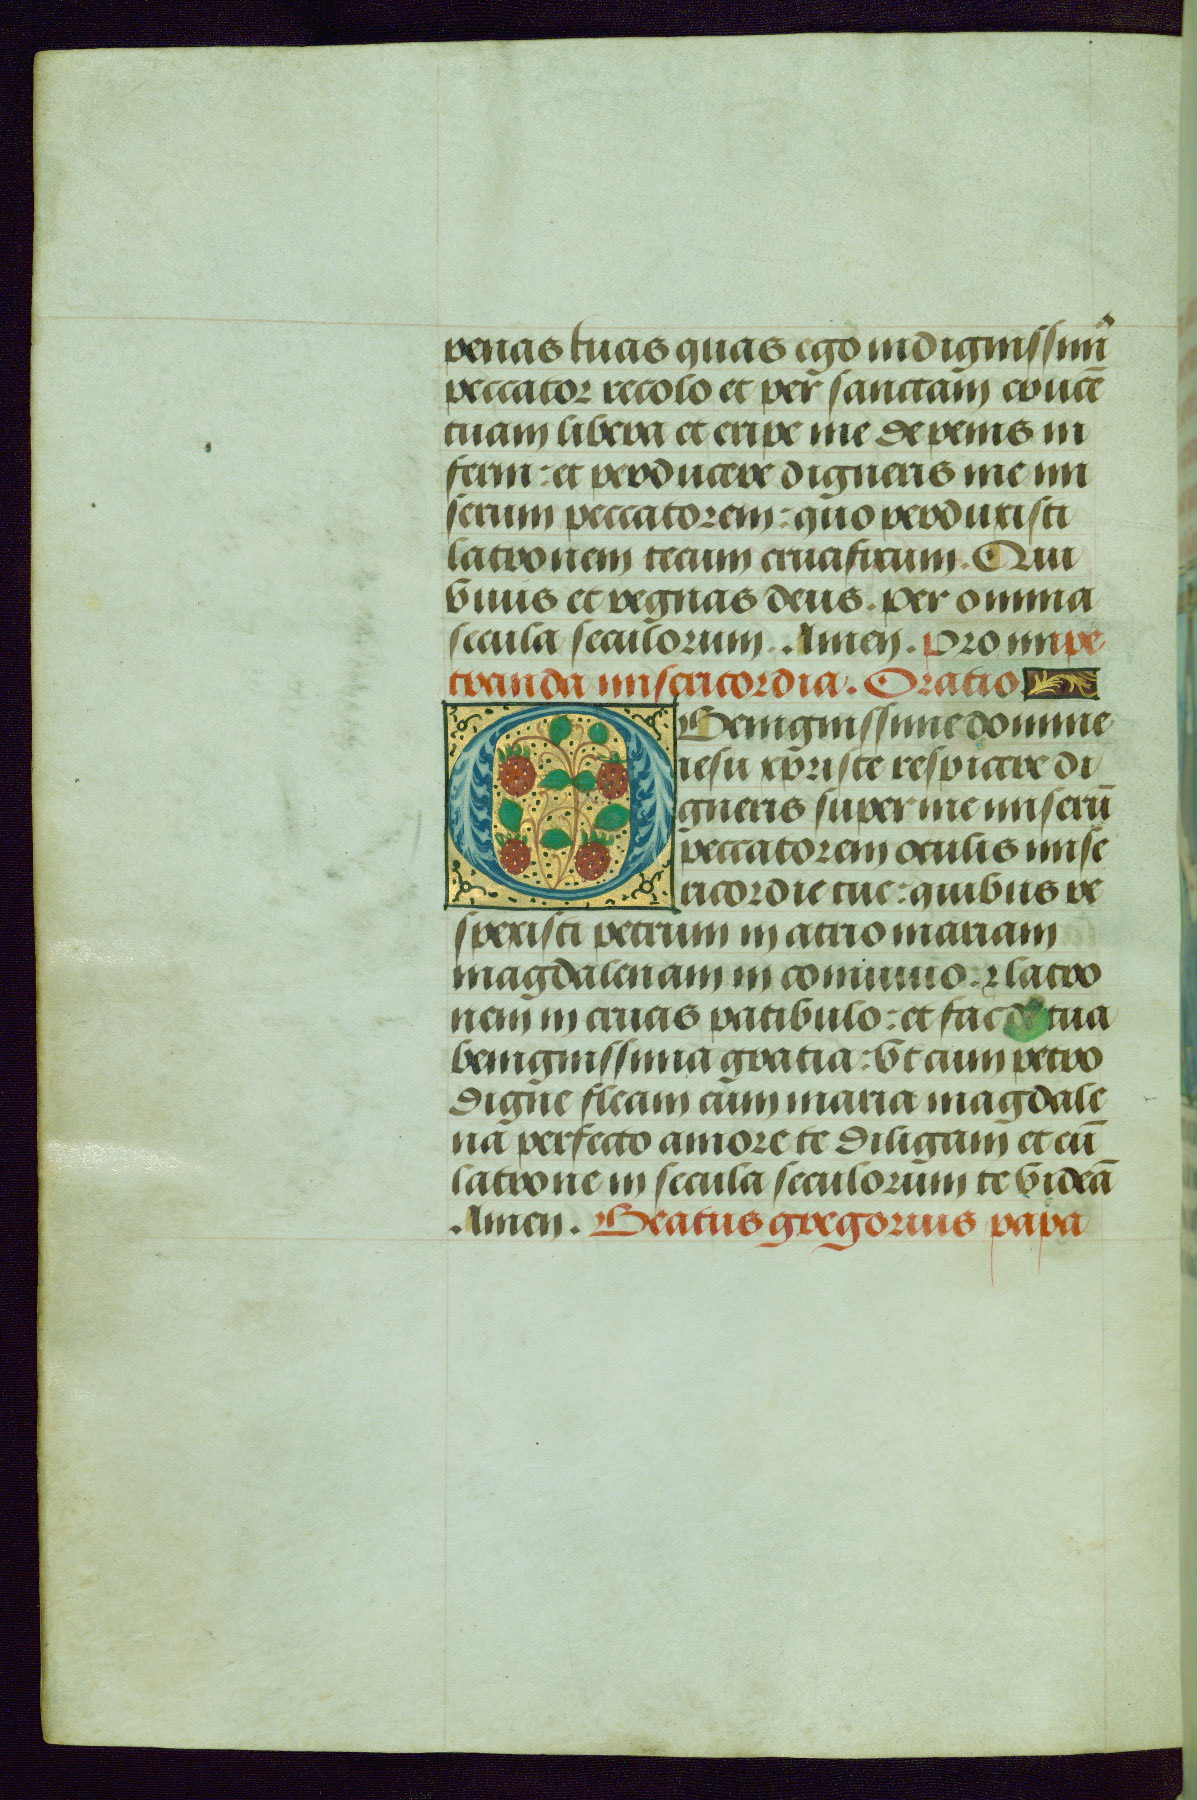 penas tuas quas ego indignissim᷒
peccator recolo et per sanctam crucē
tuam libera et eripe me de penis in
ferni: et perducere digneris me mi
serum peccatorem: quo perduxisti
latronem tecum crucifixum. Qui
viuis et regnas deus. per omnia
secula seculorum. Amen. Pro impe
tranda misericordia. Oratio
O Benignissime domine
iesu xp̄riste respicere di
gneris super me miserū
peccatorem oculis mise
ricordie tue: quibus re
spexisti petrum in atrio mariam
magdalenam in conuiuio. ⁊ latro
nem in crucis patibulo: et fac de tua
benignissima gratia: vt cum petro
digne fleam cum maria magdale
na perfecto amore te diligam et cū
latrone in secula seculorum te videā
Amen. Beatus gregorius papa